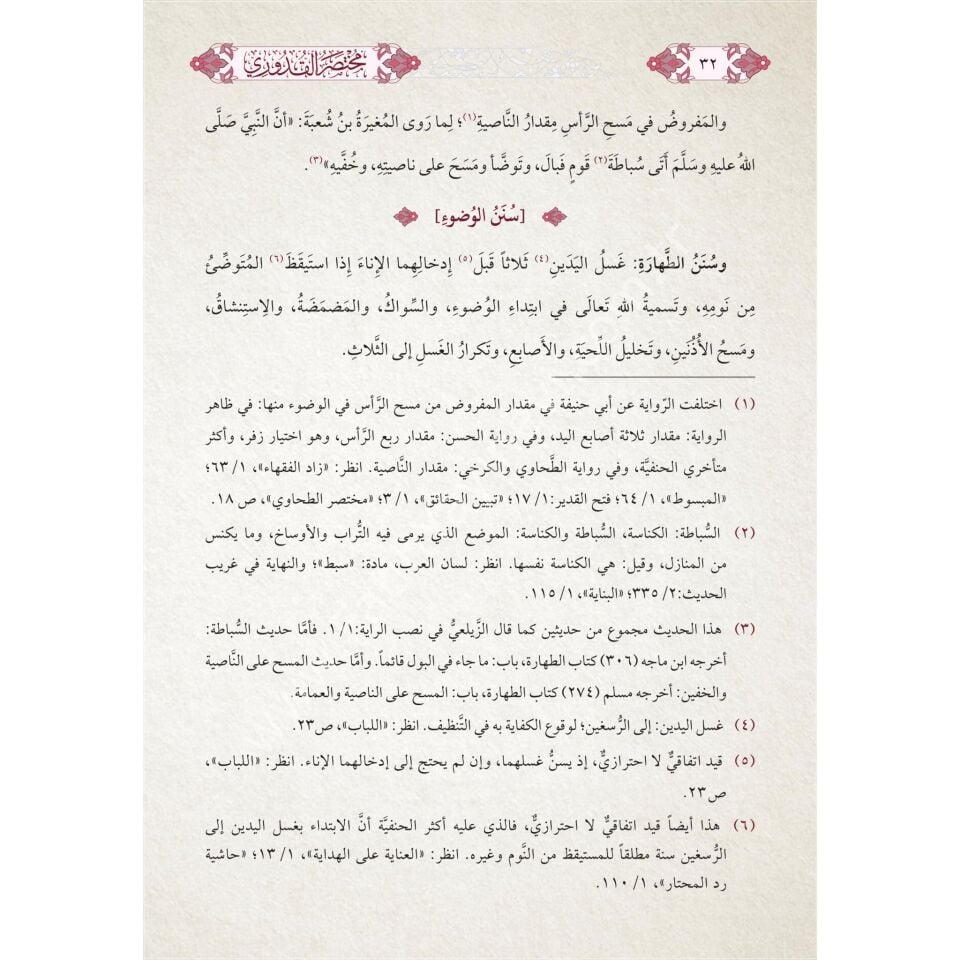 ٣٢
مُخْتَصَرُ القُدُورِي
والمَفروضُ في مَسحِ الرَّأسِ مِقدارُ النَّاصيةِ(١)؛ لِما رَوى المُغيرَةُ بنُ شُعبَةَ: «أنَّ النَّبِيَّ صَلَّى
اللهُ عليهِ وسَلَّمَ أَتَى سُباطَةَ(٢) قَومٍ فَبالَ، وتَوضَّأ ومَسَحَ على ناصيتِهِ، وخُفَّيهِ»(٣).
[سُنَنُ الوُضوءِ]
وسُنَنُ الطَّهارَةِ: غَسلُ اليَدَينِ(٤) ثَلاثاً قَبلَ(٥) إدخالِهِما الإناءَ إذا استَيقَظَ(٦) المُتَوضِّئُ
مِن نَومِهِ، وتَسميةُ اللهِ تَعالَى في ابتِداءِ الوُضوءِ، والسِّواكُ، والمَضمَضَةُ، والاِستِنشاقُ،
ومَسحُ الأُذُنَينِ، وتَخليلُ اللِّحيَةِ، والأَصابِعِ، وتَكرارُ الغَسلِ إلى الثَّلاثِ.
(١) اختلفت الرّواية عن أبي حنيفة في مقدار المفروض من مسح الرَّأس في الوضوء منها: في ظاهر
الرواية: مقدار ثلاثة أصابع اليد، وفي رواية الحسن: مقدار ربع الرَّأس، وهو اختيار زفر، وأكثر
متأخري الحنفيَّة، وفي رواية الطَّحاوي والكرخي: مقدار النَّاصية. انظر: «زاد الفقهاء»، ١/ ٦٣؛
«المبسوط»، ١/ ٦٤؛ فتح القدير:١/ ١٧؛ «تبيين الحقائق»، ١/ ٣؛ «مختصر الطحاوي»، ص ١٨.
(٢) السُّباطة: الكناسة، السُّباطة والكناسة: الموضع الذي يرمى فيه التُّراب والأوساخ، وما يكنس
من المنازل، وقيل: هي الكناسة نفسها. انظر: لسان العرب، مادة: «سبط»؛ والنهاية في غريب
الحديث:٢/ ٣٣٥؛ «البناية»، ١/ ١١٥.
(٣) هذا الحديث مجموع من حديثين كما قال الزَّيلعيُّ في نصب الراية:١/ ١. فأمَّا حديث السُّباطة:
أخرجه ابن ماجه (٣٠٦) كتاب الطهارة، باب: ما جاء في البول قائماً. وأمَّا حديث المسح على النَّاصية
والخفين: أخرجه مسلم (٢٧٤) كتاب الطهارة، باب: المسح على الناصية والعمامة.
(٤) غسل اليدين: إلى الرُّسغين؛ لوقوع الكفاية به في التَّنظيف. انظر: «اللباب»، ص٢٣.
(٥) قيد اتفاقيٌّ لا احترازيٌّ، إذ يسنُّ غسلهما، وإن لم يحتج إلى إدخالهما الإناء. انظر: «اللباب»،
ص٢٣.
(٦) هذا أيضاً قيد اتفاقيٌّ لا احترازيٌّ، فالذي عليه أكثر الحنفيَّة أنَّ الابتداء بغسل اليدين إلى
الرُّسغين سنة مطلقاً للمستيقظ من النَّوم وغيره. انظر: «العناية على الهداية»، ١/ ١٣؛ «حاشية
رد المحتار»، ١/ ١١٠.